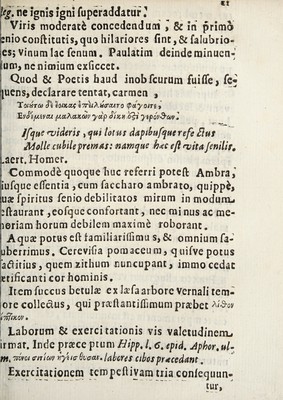 21
leg. ne ignis igni superaddatur.
Viris moderatè concedendum, & in primo
enio constitutis, quo hilariores sint, & salubrio-
es; vinum lac senum. Paulatim deinde minuen-
um, ne nimium exsiccet.
Quod & Poëtis haud inobscurum fuisse, se-
quens, declarare tentat, carmen,
Isque videris, qui lotus dapibusque refectus
Molle cubile premas: namque hæc est vita senilis.
Laert. Homer.
Commodè quoque huc referri potest Ambra,
iusque essentia, cum saccharo ambrato, quippè,
uæ spiritus senio debilitatos mirum in modum
estaurant, eosque confortant, nec minus ac me-
moriam horum debilem maximè roborant.
Aquæ potus est familiarissimus, & omnium sa-
uberrimus. Cerevisia pomaceum, quisve potus
actitius, quem zithum nuncupant, immo cedat
ætificanti cor hominis.
Item succus betulæ ex læsa arbore vernali tem-
ore collectus, qui præstantissimum præbet
Laborum & exercitationis vis valetudinem
irmat. Inde præceptum Hipp. l. 6. epid. Aphor. ul-
labores cibos præcedant.
Exercitationem tempestivam tria consequun-
tur,